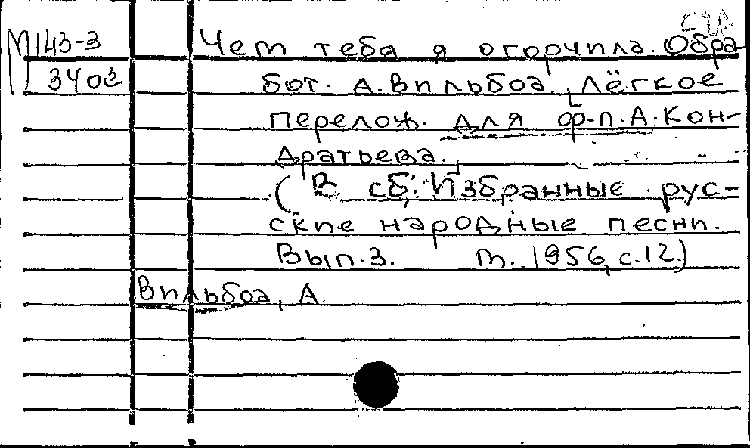 М143-3
3403
Чем тебя я огорчила. Обра-
бот. А. Вильбоа, Лёгкое
перелож. для ф-п. А. Кон-
дратьева.
(В сб: Избранные рус-
ские народные песни.
Вып. 3. М. 1956, с. 12.)
Вильбоа, А